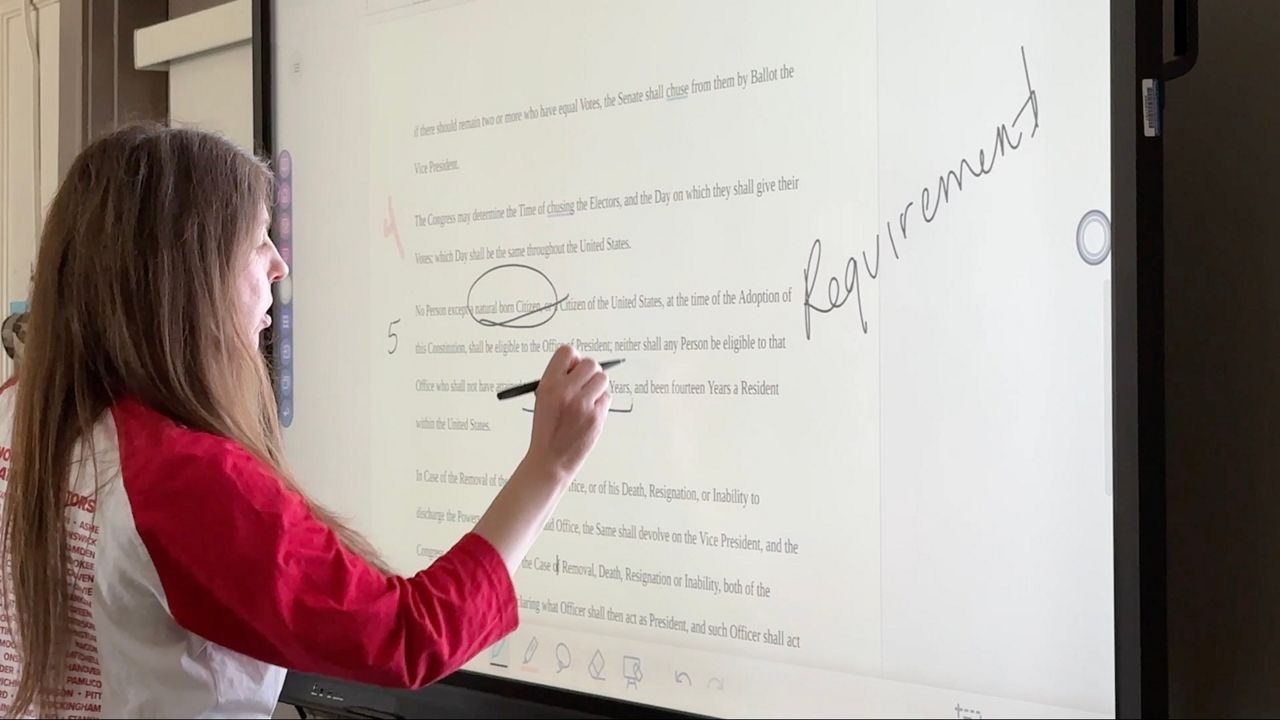 if there should remain two or more who have equal Votes, the Senate shall chuse from them by Ballot the
Vice President.
4
The Congress may determine the Time of chusing the Electors, and the Day on which they shall give their
Votes; which Day shall be the same throughout the United States.
Requirement
5
No Person except a natural born Citizen, or a Citizen of the United States, at the time of the Adoption of
this Constitution, shall be eligible to the Office of President; neither shall any Person be eligible to that
Office who shall not have Years, and been fourteen Years a Resident
within the United States.
In Case of the Removal of the or of his Death, Resignation, or Inability to
discharge the Office, the Same shall devolve on the Vice President, and the
the Case of Removal, Death, Resignation or Inability, both of the
what Officer shall then act as President, and such Officer shall act
ASHE
HANOVER
PAMLICO
PITT